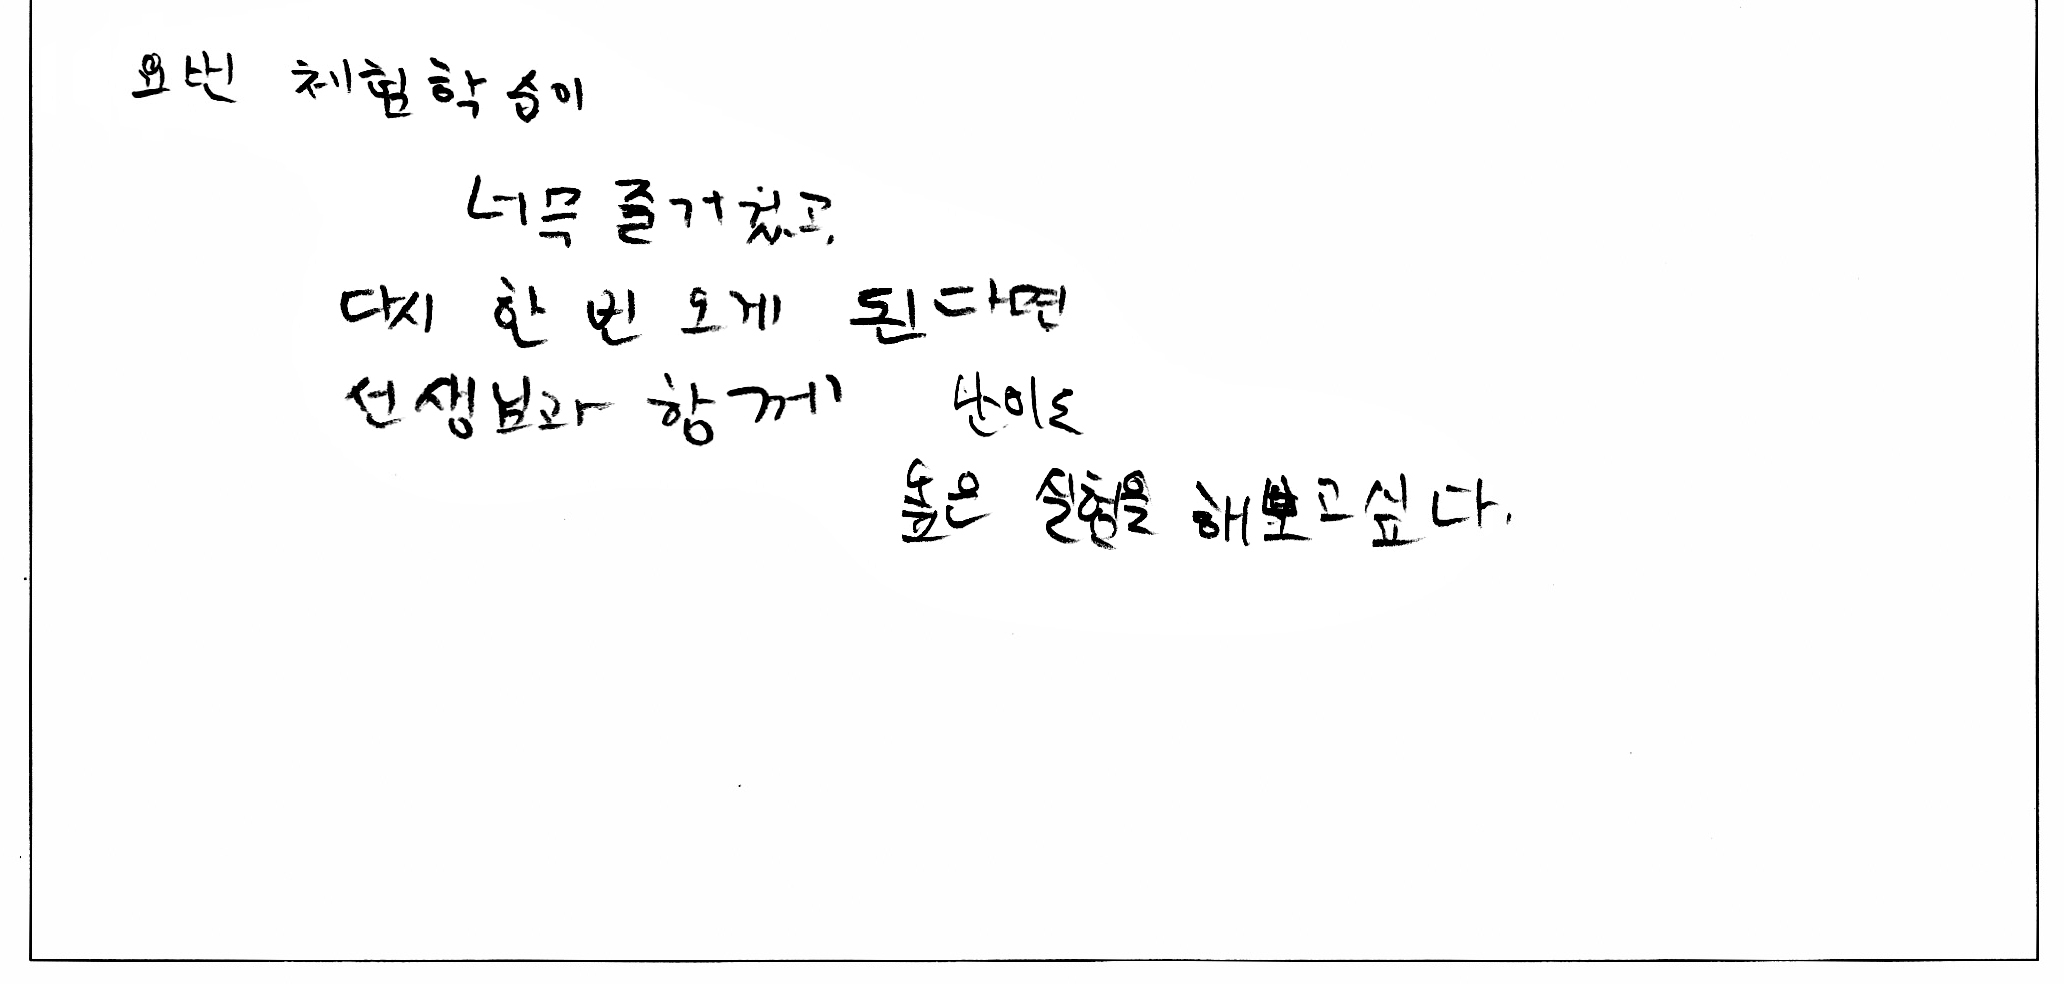 요번 체험학습이
너무 즐거웠고,
다시 한 번 오게 된다면
선생님과 함께 난이도
높은 실험을 해보고싶다.